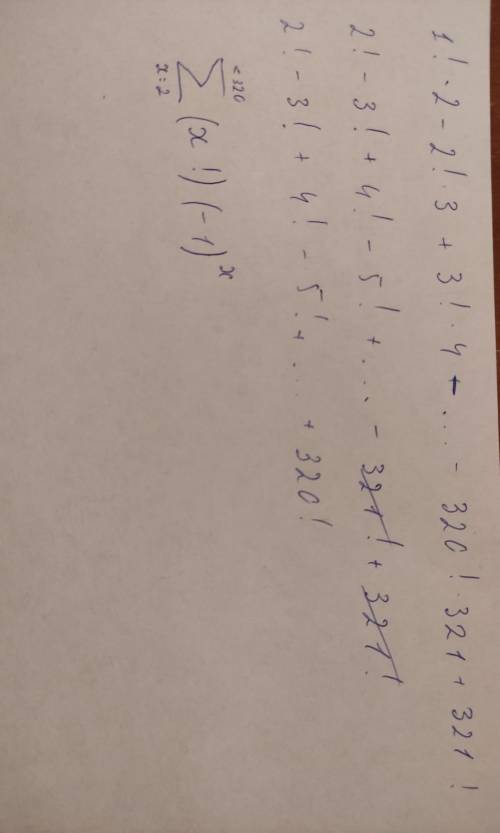 1! · 2 - 2! · 3 + 3! · 4 - ... - 320! · 321 + 321!
2! - 3! + 4! - 5! + ... - 321! + 321!
2! - 3! + 4! - 5! + ... + 320!
<320
∑ (x!) (-1)^x
x=2